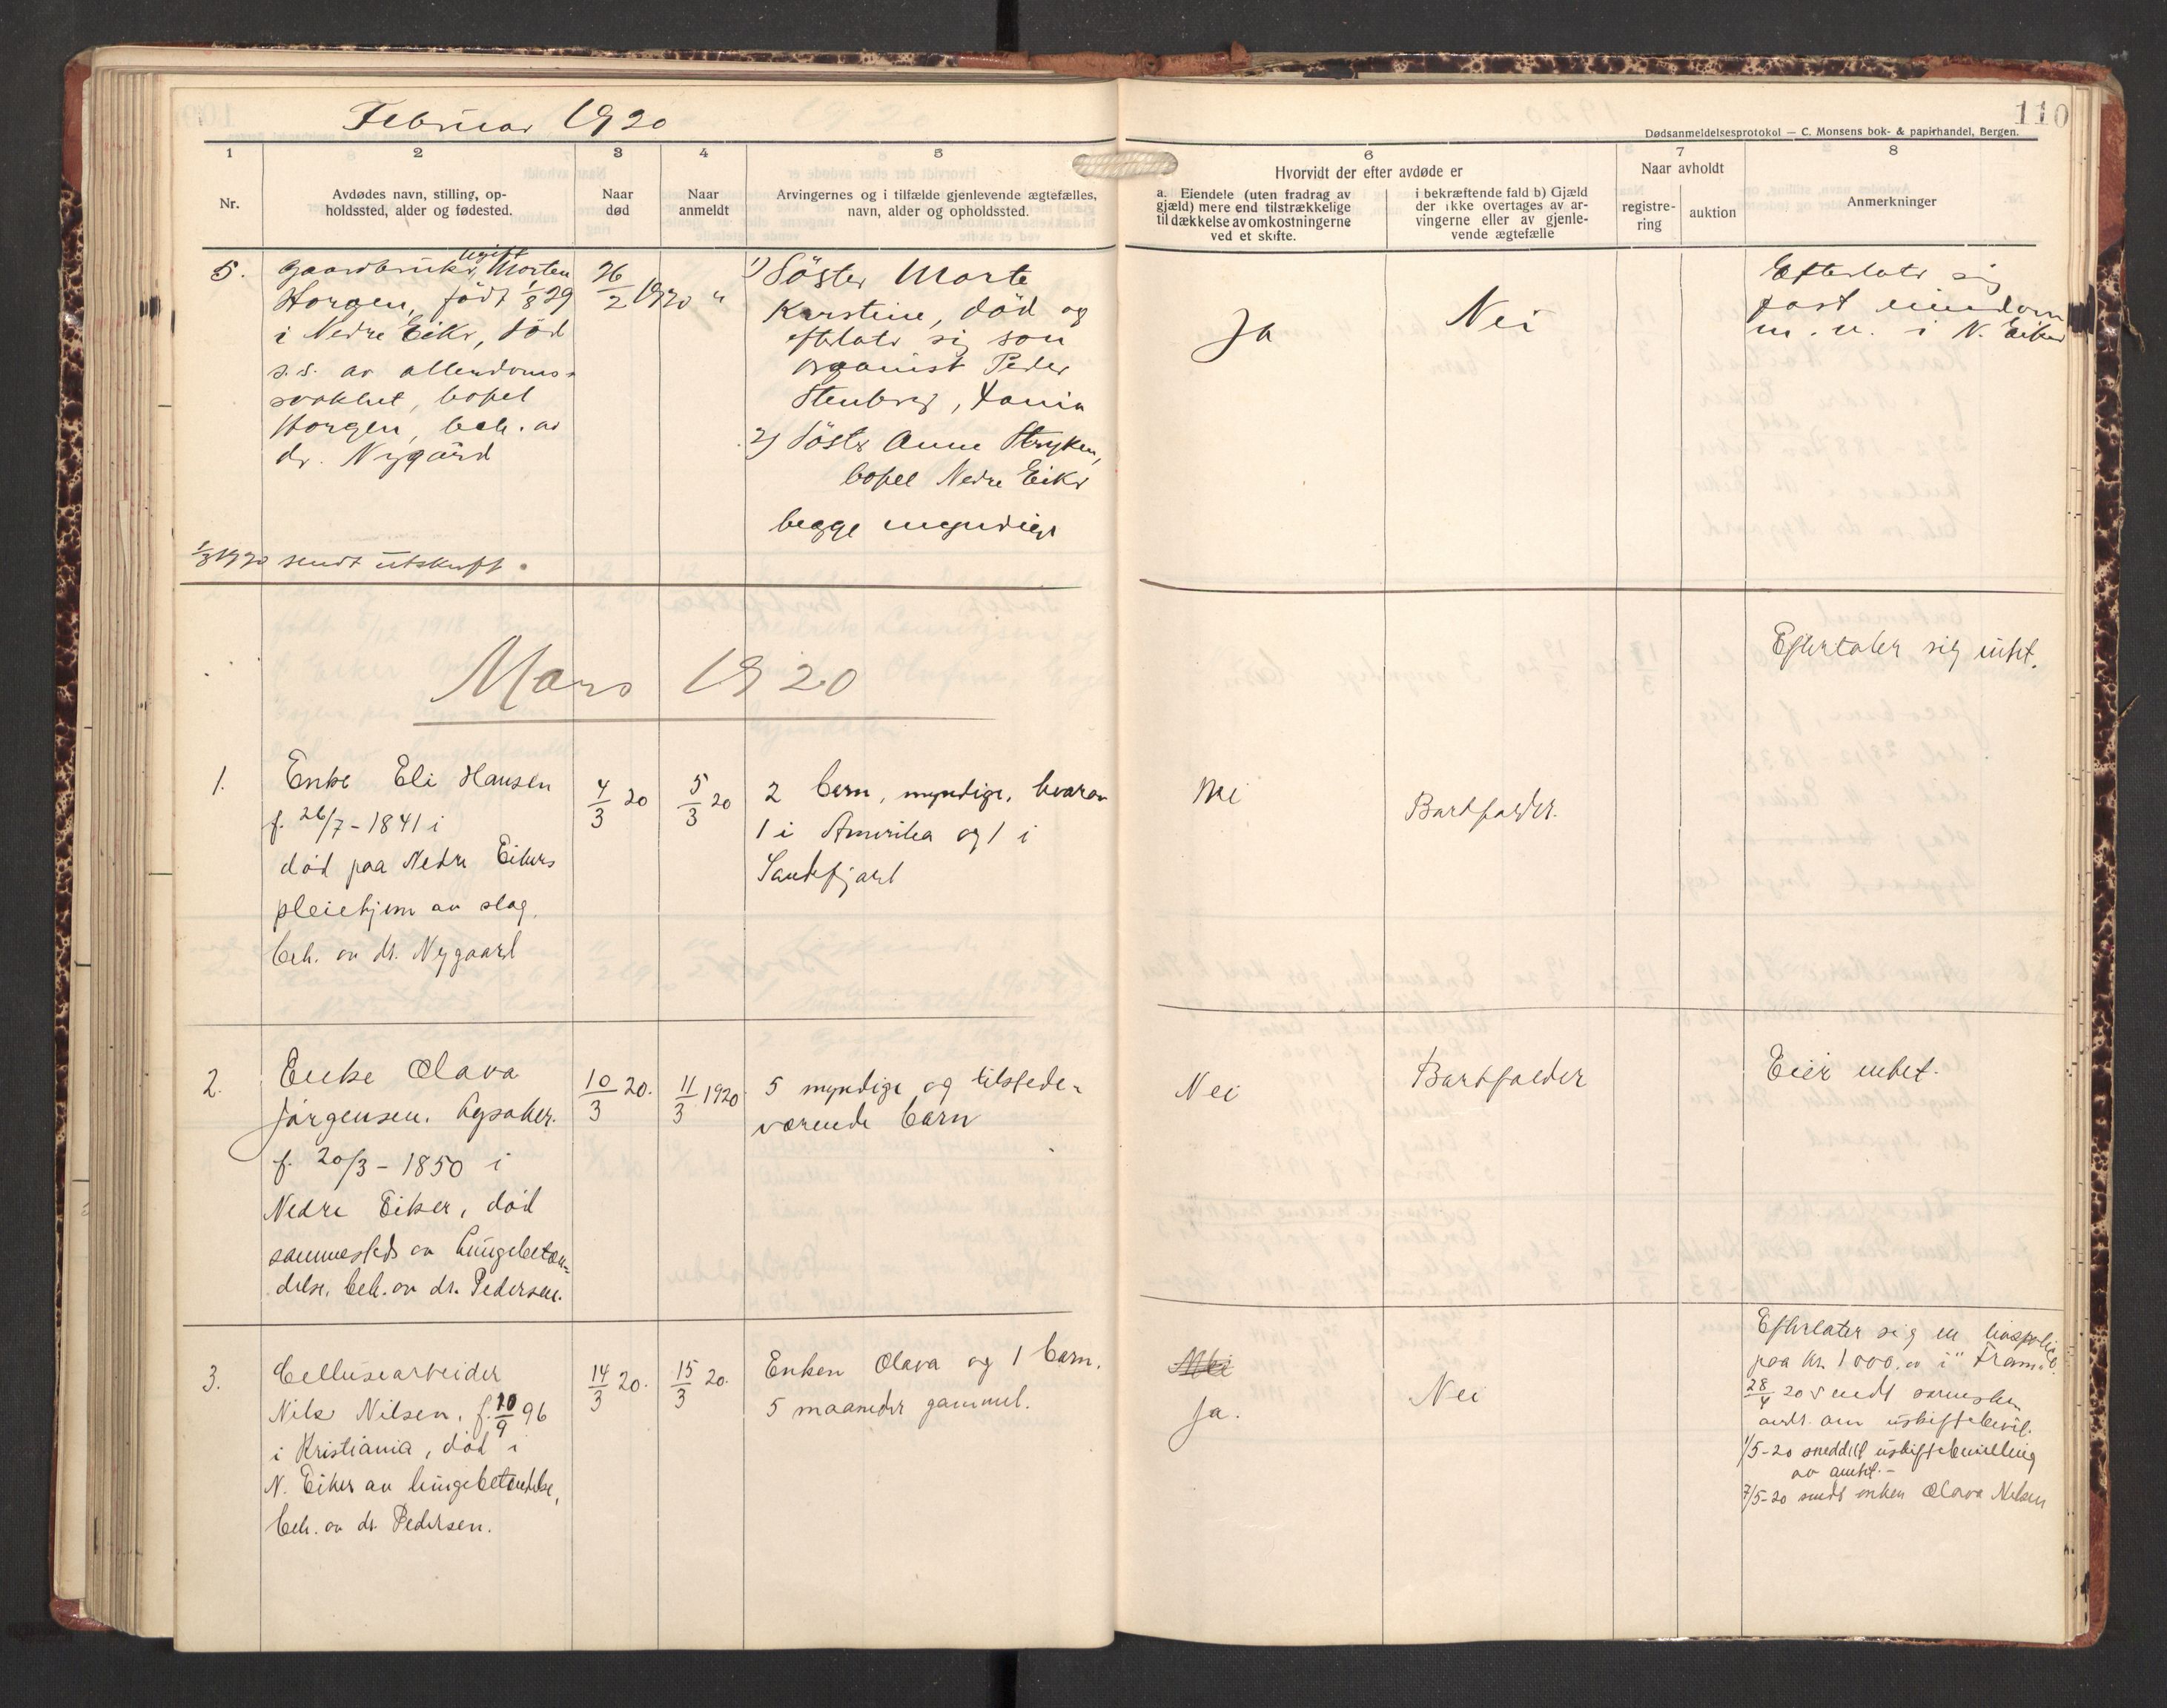 Februar 1920
110
Dødsanmeldelsesprotokol — C. Monsens bok- & papirhandel, Bergen.
1
2
3
4
5
6
7
8
Nr.
Avdødes navn, stilling, op-
holdssted, alder og fødested.
Naar
død
Naar
anmeldt
Arvingernes og i tilfælde gjenlevende ægtefælles,
navn, alder og opholdssted.
Hvorvidt der efter avdøde er
a. Eiendele (uten fradrag av
gjæld) mere end tilstrækkelige
til dækkelse av omkostningerne
ved et skifte.
i bekræftende fald b) Gjæld
der ikke overtages av ar-
vingerne eller av gjenle-
vende ægtefælle
Naar avholdt
registre-
ring
auktion
Anmerkninger
5.
ugift
Gaardbruker, Morten
Horgen, født 1/8 29
i Nedre Eiker, död
s.s. av alderdoms-
svakhet, bopel
Horgen, beh. av
dr. Nygård
26/2 1920
"
1) Söster Marte
Karstine, död og
efterlater sig sön
organist Peder
Stenberg,
2) Söster Anne Stryken,
bopel Nedre Eiker
begge myndige
Ja
Nei
Efterlater sig
fast eiendom
m. v. i N. Eiker
1/3 1920 sendt utskrift.
Mars 1920
Efterlater sig intet.
1.
Enke Eli Hansen
f. 26/7 - 1841 i
död paa Nedre Eikers
pleiehjem av slag,
beh. av dr. Nygaard
4/3 20
5/3 20
2 barn, myndige, hvorav
1 i Amerika og 1 i
Sandefjord
Nei
Bortfalder.
2.
Enke Olava
Jörgensen. Lysaker.
f. 20/3 - 1850 i
Nedre Eiker, död
sammesteds av lungebetæn-
delse, beh. av dr. Pedersen.
10/3 20.
11/3 1920
5 myndige og tilstede-
værende barn
Nei
Bortfalder
Eier intet.
3.
Cellusearbeider
Nils Nilsen, f. 10/9 96
i Kristiania, död i
N. Eiker av lungebetændelse,
beh. av dr. Pedersen.
14/3 20.
15/3 20.
Enken Olava og 1 barn,
5 maaneder gammel.
Nei
Ja.
Nei
Efterlater sig en livspolise
paa kr. 1000.00 i "Fram".
28/4 20 sendt
andr. om uskiftebevil.
1/5-20 meddelt uskiftebevilling
av amtet. -
7/5-20 sendt enken Olava Nilsen